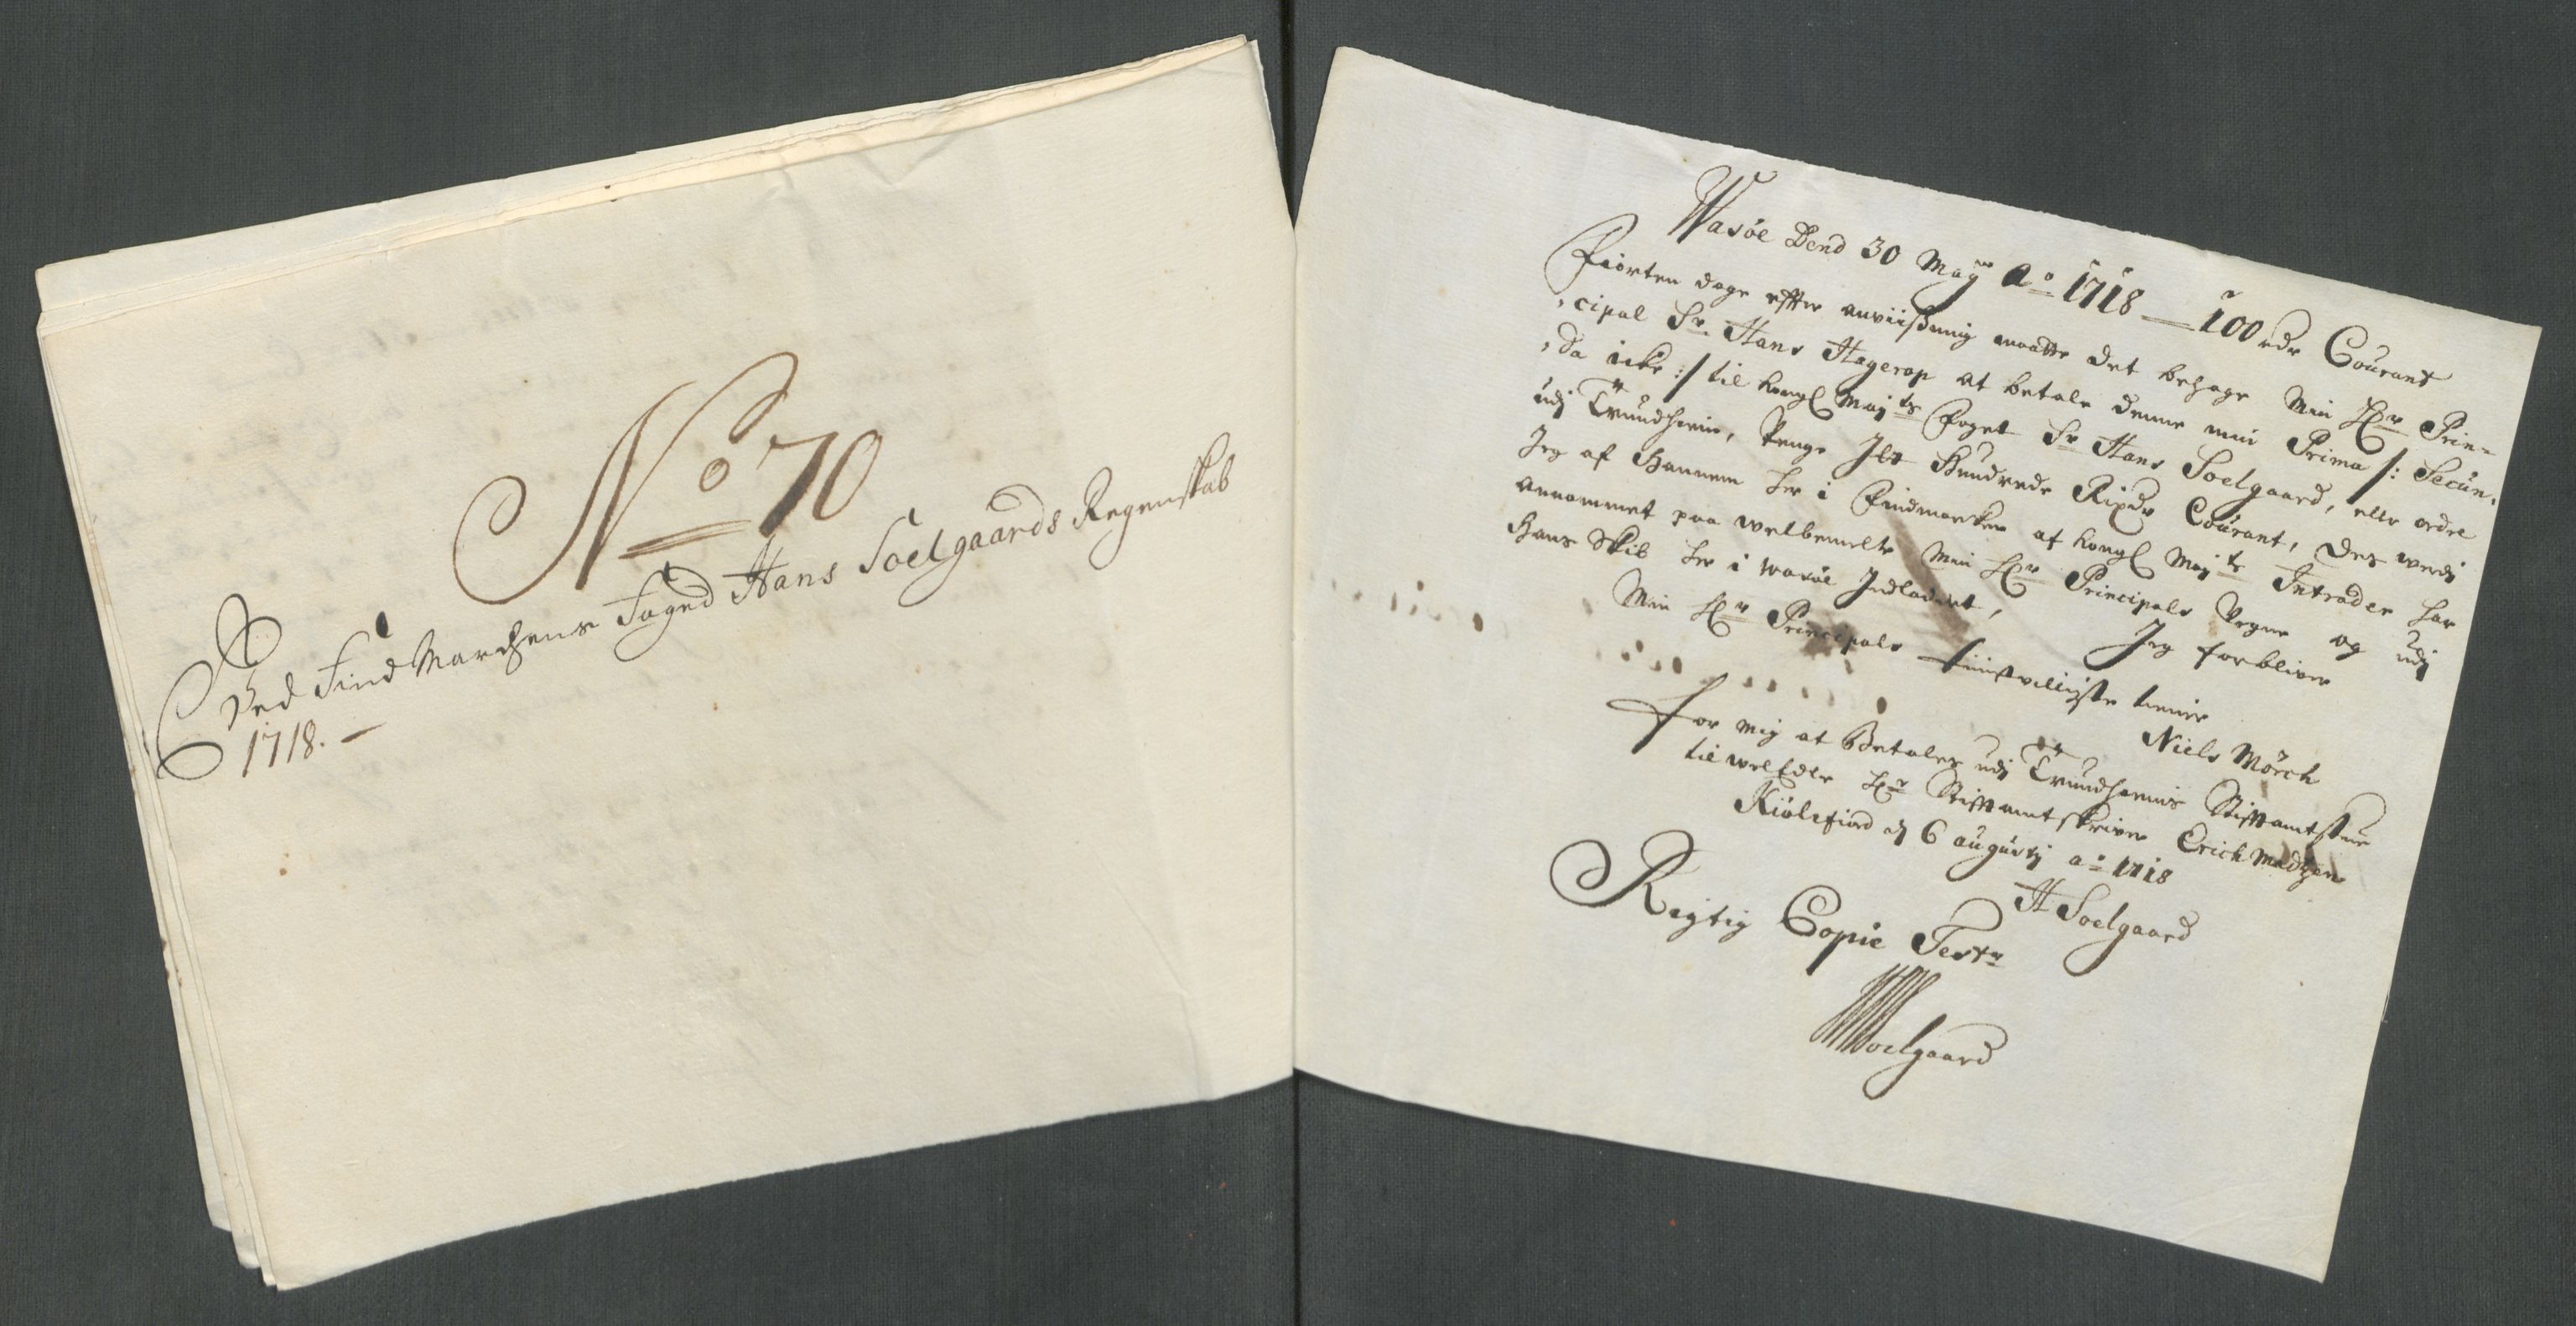 No 70
Ved Find Marchens Foged Hans Soelgaards Regenskab
1718. –
Wasöe Dend 30 Maÿ Ao 1718 — 100 rdr Courant
Fiorten dage efter anviißning maatte det behage Min Hr Prin-
cipal Sr. Hans Hagerop at betale denne min Prima /: Secun-
da icke :/ til Kongl Maÿts Foget Sr Hans Soelgaard, eller ordre
udj Trundhiem, Penge Jtt Hundrede Rixdr Courant, des werdj
Jeg af Hannem her i Findmarken af Kongl Maÿts Intrader har
annommet paa welbemelte Min Hr Principals Vegne og udj
Hans Skib her i Wasöe Jndladet, Jeg forbliver
Min Hr Principals tienstvilligste tiener
Niels Mörch
For mig at Betales udj Trundhiems Stiftamtstue
til welEdle Hr Stiftamtskriver Erich Madtzen
Kiölefiord dj 6 augustj ao 1718
H Soelgaard
Rigtig Copie Test
Soelgaard